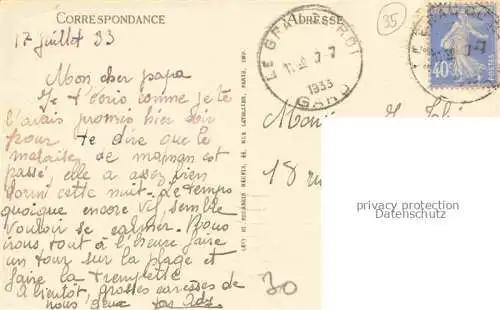 CORRESPONDANCE
ADRESSE
35
17 juillet 33
LE GRAU DU ROI
7-7
1933
GARD
40c
POSTES
Mon cher papa
Je t'écris comme je te
l'avais promis hier soir
pour te dire que le
malaise de maman est
passé, elle a assez bien
dormi cette nuit. Le temps
quoique encore vif semble
vouloir se calmer. Nous
irons tout à l'heure faire
un tour sur la plage et
faire la trempette
A bientôt, grosses caresses de
nous deux
LEVY ET NEURDEIN RÉUNIS, 44, RUE LETELLIER, PARIS, IMP.
18
30
privacy protection
Datenschutz